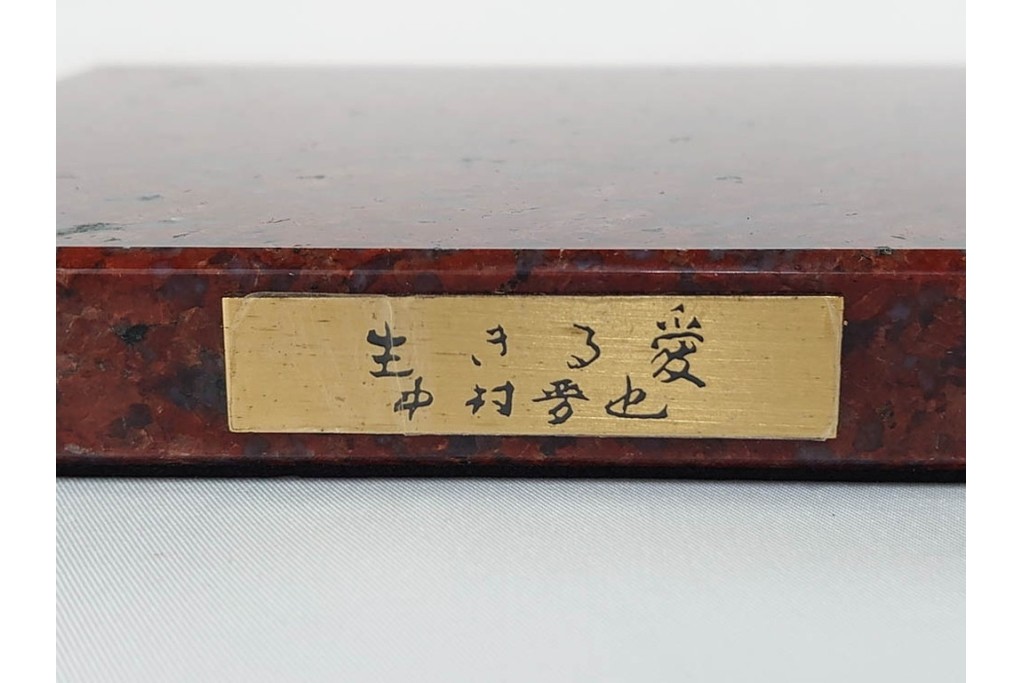 生きる愛
中村晋也